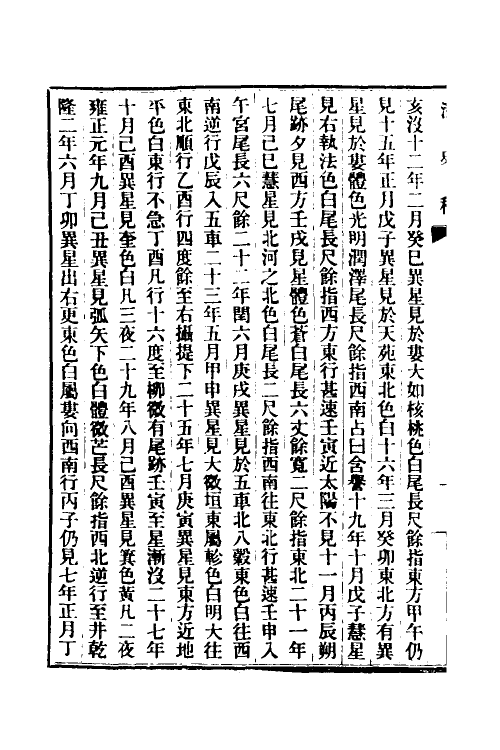 亥沒十二年二月癸巳異星見於婁大如核桃色白尾長尺餘指東方甲午仍
見十五年正月戊子異星見於天苑東北色白十六年三月癸卯東北方有異
星見於婁體色光明潤澤尾長尺餘指西南占曰含譽十九年十月戊子彗星
見右執法色白尾長尺餘指西方東行甚速壬寅近太陽不見十一月丙辰朔
尾跡夕見西方壬戌見星體色蒼白尾長六丈餘寬二尺餘指東北二十一年
七月己巳彗星見北河之北色白尾長二尺餘指西南往東北行甚速壬申入
午宮尾長六尺餘二十二年閏六月庚戌異星見於五車北八穀東色白往西
南逆行戊辰入五車二十三年五月甲申異星見大微垣東屬軫色白明大往
東北順行乙酉行四度餘至右攝提下二十五年七月庚寅異星見東方近地
平色白東行不急丁酉凡行十六度至柳微有尾跡壬寅至星漸沒二十七年
十月己酉異星見奎色白凡三夜二十九年八月己酉異星見箕色黃凡二夜
雍正元年九月己丑異星見弧矢下色白體微芒長尺餘指西北逆行至井乾
隆二年六月丁卯異星出右更東色白屬婁向西南行丙子仍見七年正月丁